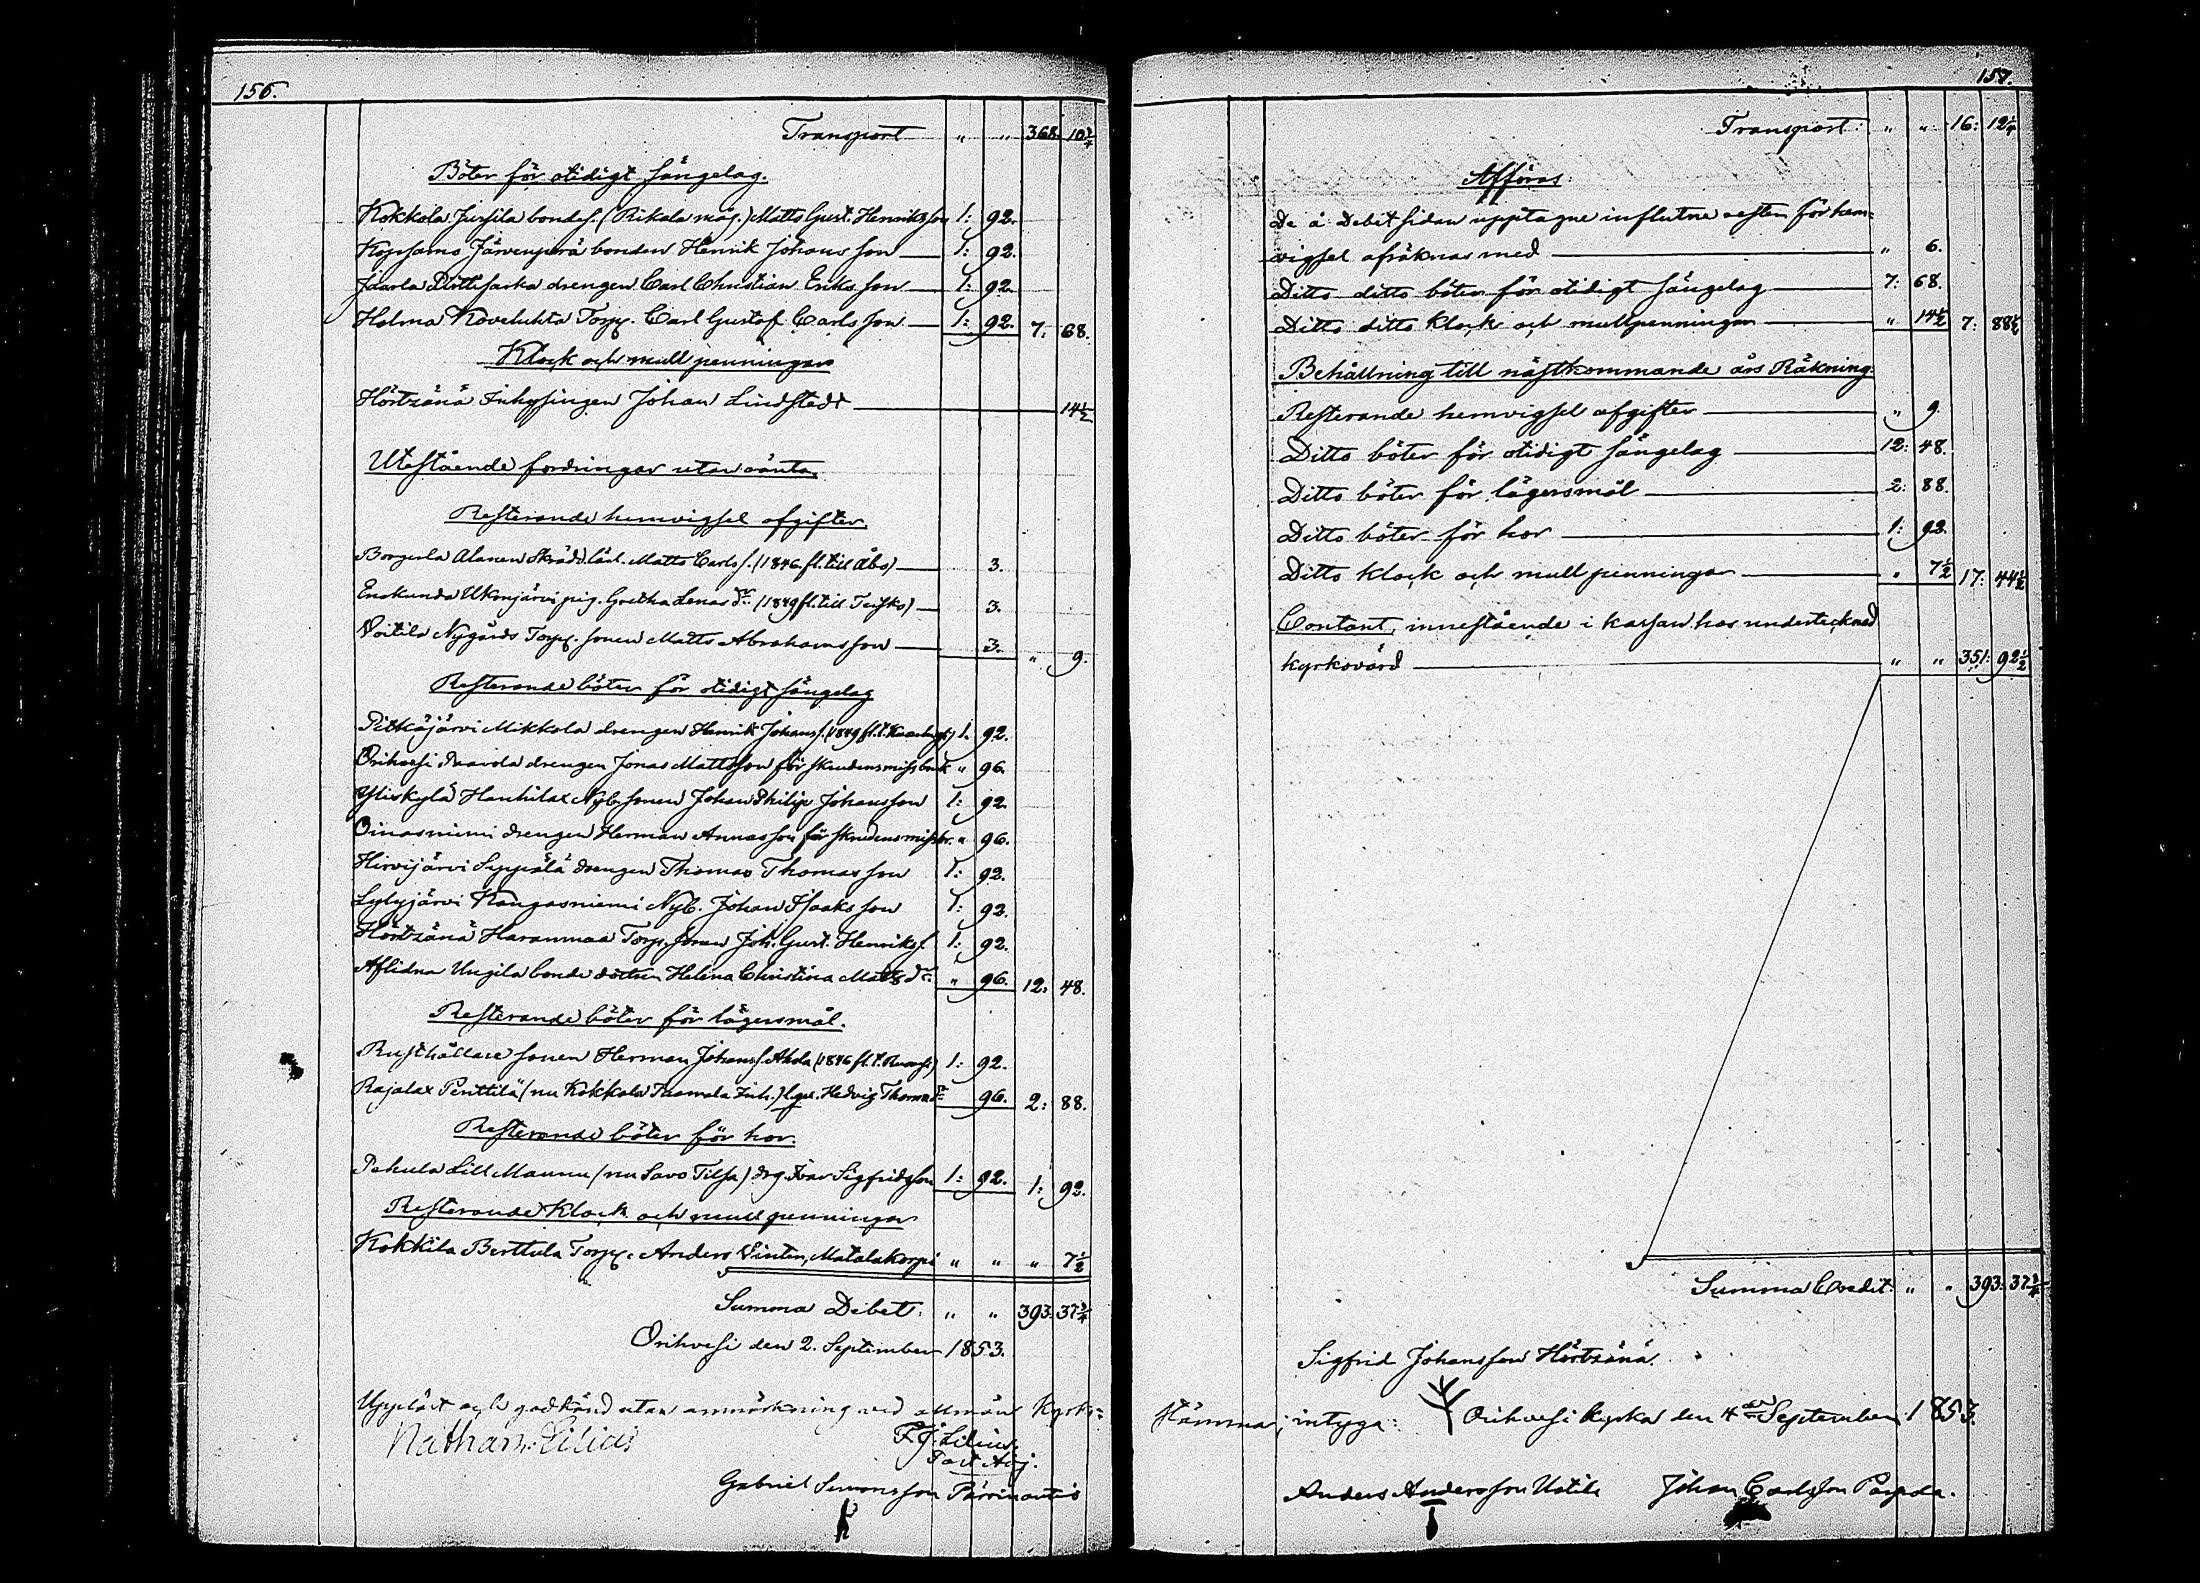 156.
Transport " " 368 10 3/4
Böter för otidigt sängelag.
Kokkola Jussila bondes. (Rikala måg.) Matts Gust. Henriksson 1: 92.
Kopsamo Järvenperä bonden Henrik Johansson 1: 92.
drengen Carl Christian Eriksson 1: 92.
Holma Kovelahti Torp. Carl Gustaf Carlsson 1: 92. 7: 68.
Klock och mullpenningar
Hörtsänä Inhysingen Johan Lindstedt 14 1/2
Utestående fordringar utan ränta.
Resterande hemvigsel afgifter.
Alanen Skrädd. lärl. Matts Carls s. (1846 fl. till Åbo) 3.
Enokunda Ukonjärvi pig. Gretha Lenas dr (1849 fl. till Teisko) 3.
Voitila Nygårds Torp. sonen Matts Abrahamsson 3. " 9.
Resterande böter för otidigt sängelag
Pitkäjärvi Mikkola drengen Henrik Johans s. (1849 fl. t.) 1. 92.
Orihvesi Paavola drengen Jonas Mattsson för skudensmissbruk " 96.
Yliskylä Hanhilax Nyb. sonen Johan Philip Johansson 1: 92.
Oinasniemi drengen Herman Annasson för " 96.
Hirvijärvi Seppälä drengen Thomas Thomasson 1: 92.
Lylyjärvi Kangasniemi Nyb. Johan Isaksson 1: 92.
Hörtsänä Haranmaa Torp. sonen Joh. Gust. Henriks s. 1: 92.
Aflidna Ungila bonde dottren Helena Christina Matts dr. " 96. 12: 48.
Resterande böter för lägersmål.
Rusthållare sonen Herman Johans s. Ahola (1846 fl. t.) 1: 92.
Rajalax Penttilä (nu Kokkola Paavola Inh.) Hedvig Thomas dr 96. 2: 88.
Resterande böter för hor.
Pehula Lill Maunu (nu Savo Tilsa) drg. Ivar Sigfridsson 1: 92. 1: 92.
Resterande Klock och mullpenningar
Kokkila Berttula Torp. Anders Vinter, Matalakorpi " " " 7 1/2
Summa Debet: " " 393: 37 3/4
Orihvesi den 2. September 1853.
Uppläst och godkänd utan anmärkning vid allmän Kyrko=
Nathan. Lilius F. J. Lilius.
Past. Adj.
Gabriel Simonsson
157.
Transport: " " 16: 12 1/4
Afföras
De å Debet sidan upptagne influtne resten för hem=
vigsel afräknas med " 6.
Ditto ditto böter för otidigt sängelag 7: 68.
Ditto ditto klock och mullpenningar " 14 1/2 7: 88 1/2
Behållning till nästkommande års Räkning.
Resterande hemvigsel afgifter " 9.
Ditto böter för otidigt sängelag 12: 48.
Ditto böter för lägersmål 2: 88.
Ditto böter för hor 1: 92.
Ditto klock och mull penningar " 7 1/2 17: 44 1/2
Contant, innestående i kassan hos undertecknad
kyrkovärd " " 351: 92 1/2
Summa Credit: " " 393: 37 3/4
Sigfrid Johansson Hörtsänä.
Stämma, intyga: Orihvesi kyrka den 4 de September 1853.
Anders Andersson Uotila Johan Carlsson